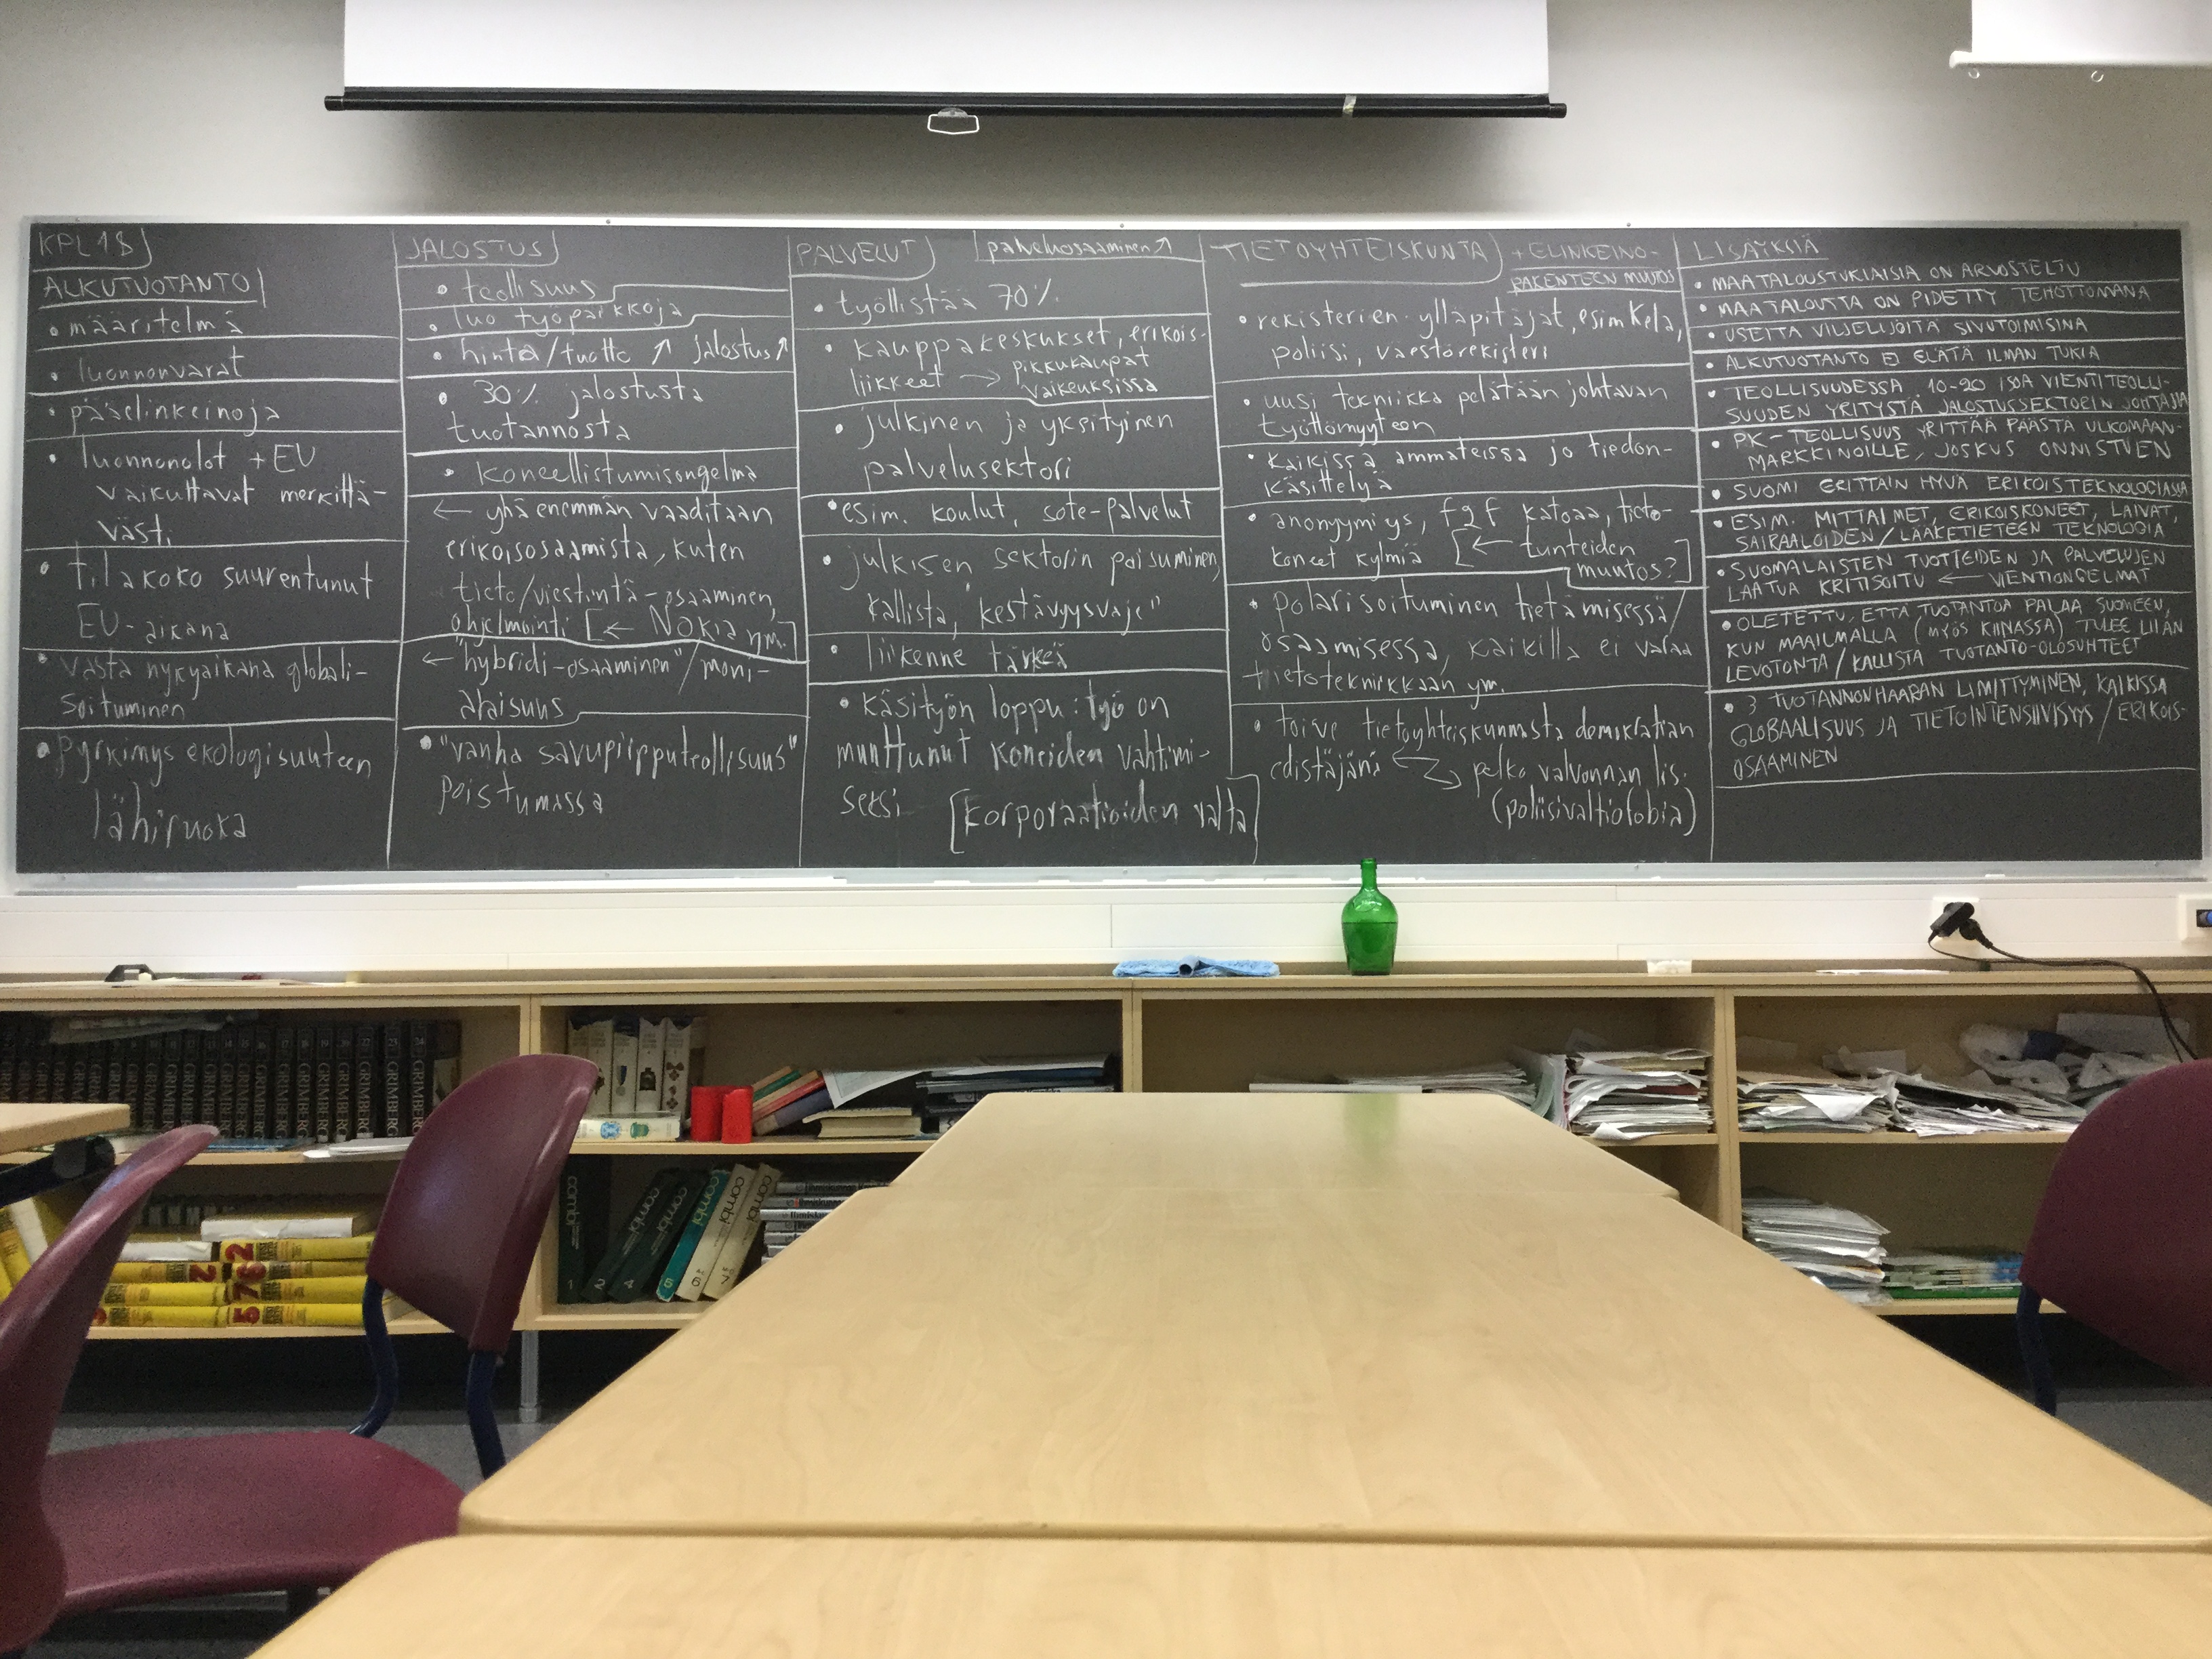 KPL 18
ALKUTUOTANTO
• määritelmä
• luonnonvarat
• pääelinkeinoja
• luonnonolot + EU
vaikuttavat merkittä-
västi
• tilakoko suurentunut
EU-aikana
• vasta nykyaikana globali-
soituminen
• pyrkimys ekologisuuteen
lähiruoka
JALOSTUS
• teollisuus
• luo työpaikkoja
• hinta/tuotto ↗ jalostus ↗
• 30% jalostusta
tuotannosta
• koneellistumisongelma
← yhä enemmän vaaditaan
erikoisosaamista, kuten
tieto/viestintä-osaaminen,
ohjelmointi [← Nokia ym.]
← "hybridi-osaaminen"/moni-
alaisuus
• "vanha savupiipputeollisuus"
poistumassa
PALVELUT
palveluosaaminen ↗
• työllistää 70%
• kauppakeskukset, erikois-
liikkeet → pikkukaupat
vaikeuksissa
• julkinen ja yksityinen
palvelusektori
• esim. koulut, sote-palvelut
• julkisen sektorin paisuminen,
kallista, "kestävyysvaje"
• liikenne tärkeä
• käsityön loppu: työ on
muuttunut koneiden vahtimi-
seksi [korporaatioiden valta]
TIETOYHTEISKUNTA + ELINKEINO-
RAKENTEEN MUUTOS
• rekisterien ylläpitäjät, esim Kela,
poliisi, väestörekisteri
• uusi tekniikka pelätään johtavan
työttömyyteen
• kaikissa ammateissa jo tiedon-
käsittelyä
• anonyymiys, f2f katoaa, tieto-
koneet kylmiä [← tunteiden
muutos?]
• polarisoituminen tietämisessä/
osaamisessa, kaikilla ei varaa
tietotekniikkaan ym.
• toive tietoyhteiskunnasta demokratian
edistäjänä ↔ pelko valvonnan lis.
(poliisivaltiofobia)
LISÄYKSIÄ
• MAATALOUSTUKIAISIA ON ARVOSTELTU
• MAATALOUTTA ON PIDETTY TEHOTTOMANA
• USEITA VILJELIJÖITÄ SIVUTOIMISINA
• ALKUTUOTANTO EI ELÄTÄ ILMAN TUKIA
• TEOLLISUUDESSA 10-20 ISOA VIENTITEOLLI-
SUUDEN YRITYSTÄ JALOSTUSSEKTORIN JOHTAJIA
• PK-TEOLLISUUS YRITTÄÄ PÄÄSTÄ ULKOMAAN-
MARKKINOILLE, JOSKUS ONNISTUEN
• SUOMI ERITTÄIN HYVÄ ERIKOISTEKNOLOGIASSA
• ESIM. MITTAIMET, ERIKOISKONEET, LAIVAT,
SAIRAALOIDEN/LÄÄKETIETEEN TEKNOLOGIA
• SUOMALAISTEN TUOTTEIDEN JA PALVELUJEN
LAATUA KRITISOITU ← VIENTIONGELMAT
• OLETETTU, ETTÄ TUOTANTOA PALAA SUOMEEN,
KUN MAAILMALLA (MYÖS KIINASSA) TULEE LIIAN
LEVOTONTA/KALLISTA TUOTANTO-OLOSUHTEET
• 3 TUOTANNONHAARAN LIMITTYMINEN, KAIKISSA
GLOBAALISUUS JA TIETOINTENSIIVISYYS/ERIKOIS-
OSAAMINEN
GRIMBERG
GRIMBERG
GRIMBERG
GRIMBERG
GRIMBERG
GRIMBERG
GRIMBERG
GRIMBERG
GRIMBERG
combi 1
combi 2
combi 4
combi 5
combi 6
combi 7
2 762
576